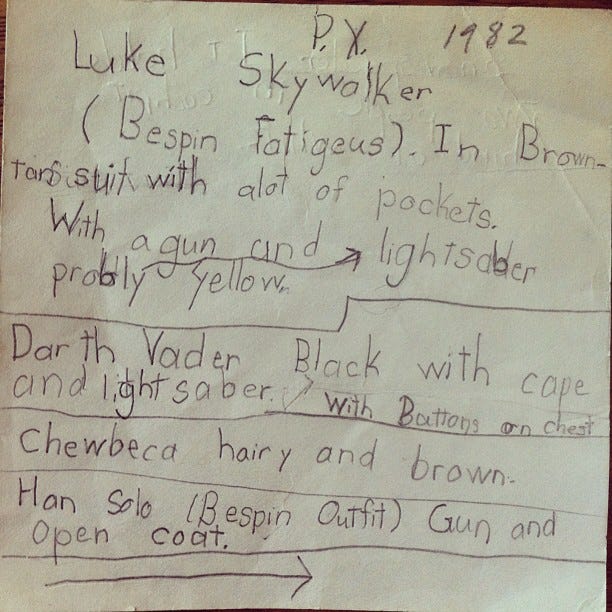 P.X. 1982
Luke Skywalker
(Bespin Fatigeus). In Brown-
tan suit with alot of pockets.
With a gun and lightsaber
probly yellow.
Darth Vader Black with cape
and lightsaber. With Buttons on chest
Chewbeca hairy and brown.
Han Solo (Bespin Outfit) Gun and
Open coat.